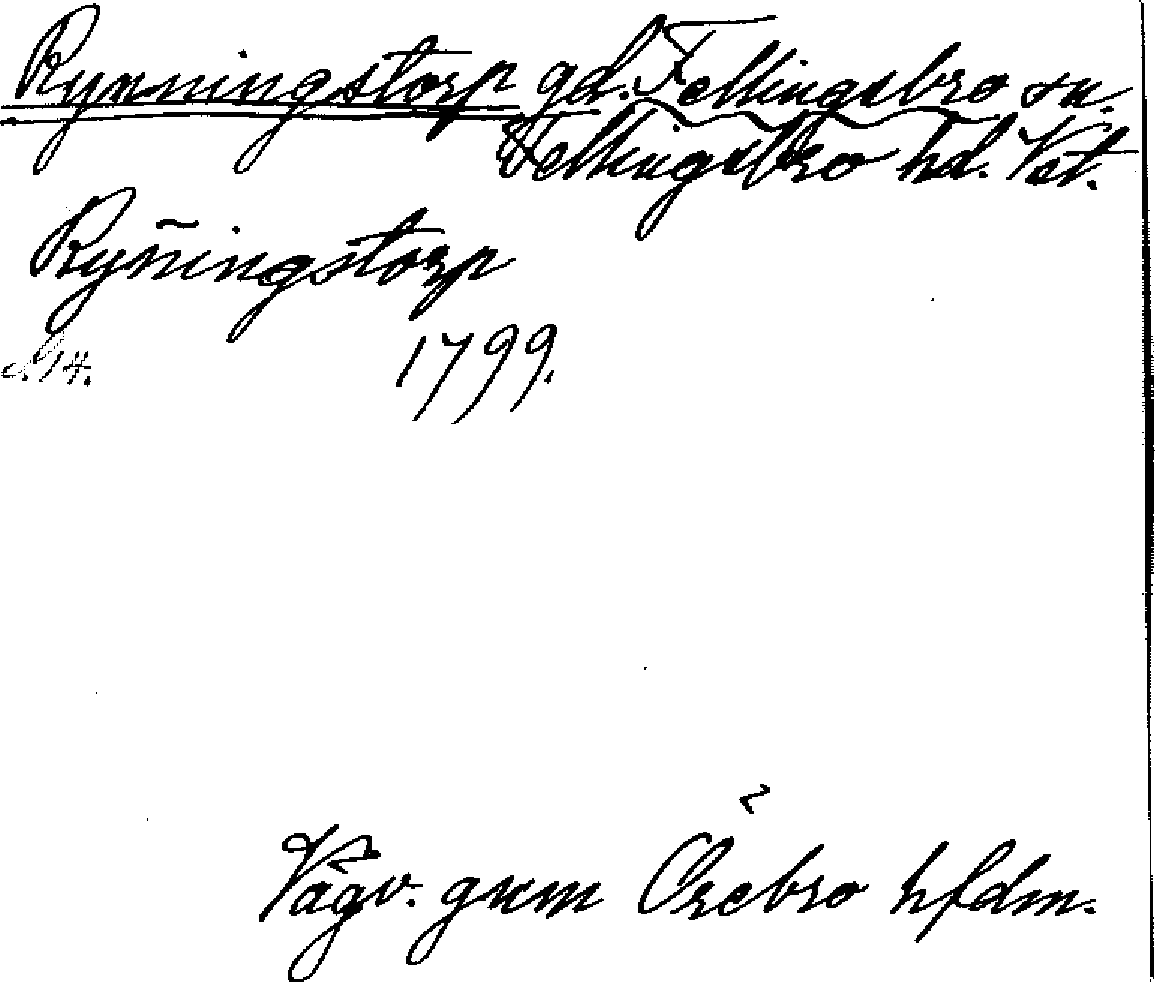 Rynningstorp gd. Fellingsbro sn.
Fellingsbro hd. Vst.
Ryn̄ingstorp
1799.
Vägv. gnm Örebro hfdm.